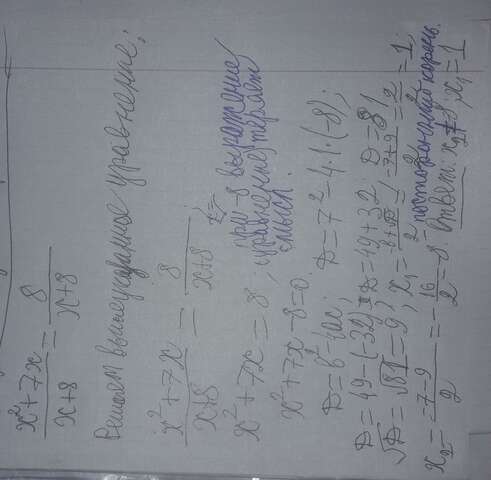 x²+7x/x+8 = 8/x+8
Решаем вышеуказанное уравнение;
x²+7x/x+8 = 8/x+8
при -8 выражение
уравнение теряет
смысл.
x²+7x = 8,
x²+7x-8=0
D=b²-4ac; D=7²-4·1·(-8);
D=49-(-32); D=49+32; D=81
√D=√81=9; x₁= -7+9/2 = 2/2 = 1;
x₂= -7-9/2 = -16/2 = -8 - посторонний корень.
Ответ: x₂≠-8; x₁=1